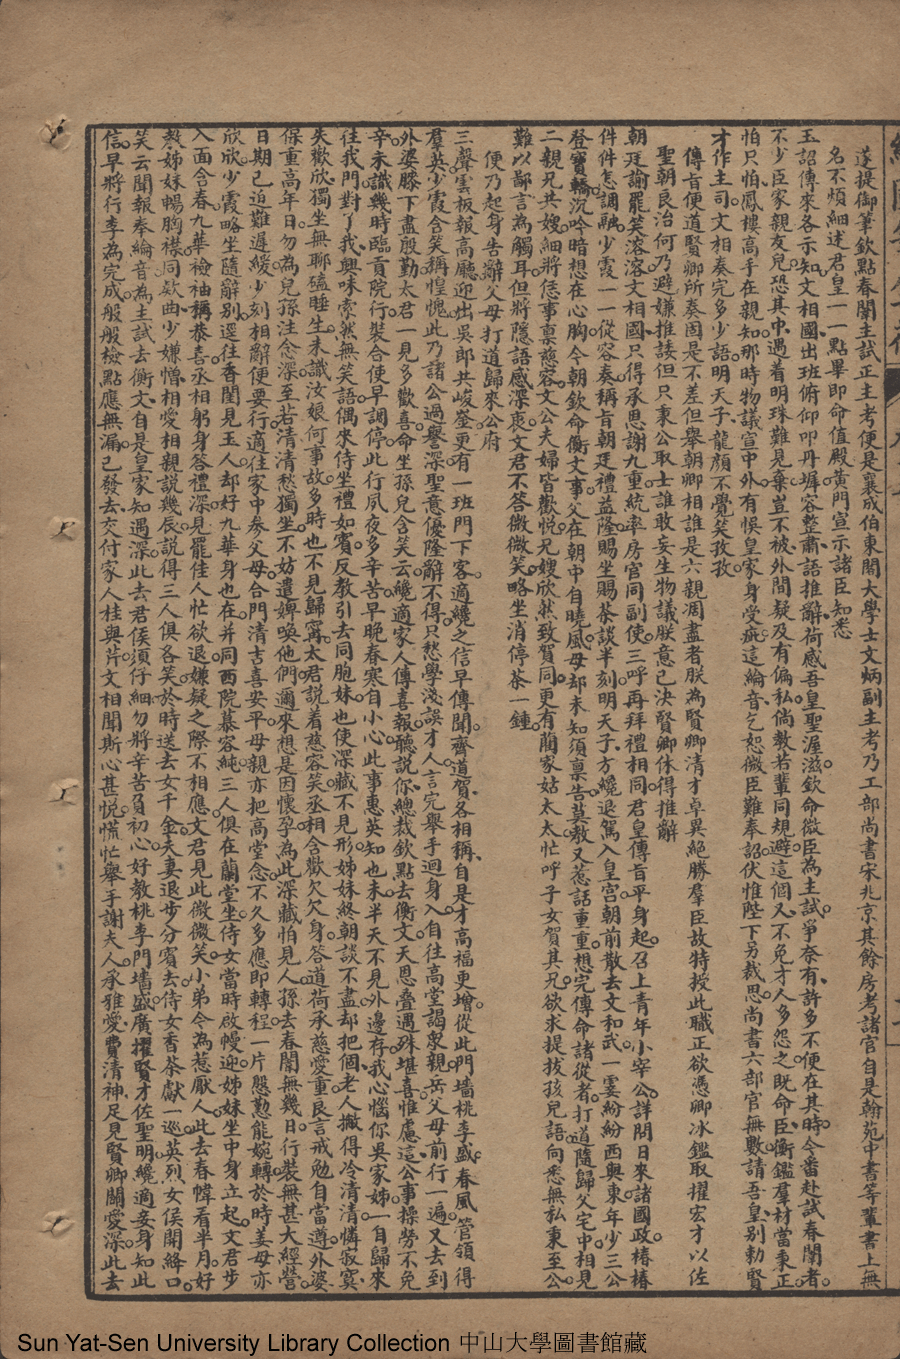 遂提御筆欽點春闈主試正主考便是襄成伯東閣大學士文炳副主考乃工部尚書宋兆京其餘房考諸官自是翰苑中書等輩書上無
名不煩細述君皇一一點畢即命值殿黃門宣示諸臣知悉
玉詔傳來各示知文相國出班俯仰叩丹墀容整肅語推辭荷感吾皇聖渥滋欽命微臣為主試爭奈有許多不便在其時今番赴試春闈者
不少臣家親友兒恐其中遇着明珠難見棄豈不被外間疑及有偏私倘教若輩同規避這個又不免才人多怨之既命臣衡鑑羣材當秉正
怕只怕鳳樓高手在親知那時物議宣中外有悞皇家身受疵這綸音乞恕微臣難奉詔伏惟陛下另裁思尚書六部官無數請吾皇別勅賢
才作主司文相奏完多少語明天子龍顏不覺笑孜孜
傳旨便道賢卿所奏固是不差但舉朝卿相誰是六親凋盡者朕為賢卿清才卓異絕勝羣臣故特授此職正欲憑卿冰鑑取擢宏才以佐
聖朝良治何乃避嫌推諉但只秉公取士誰敢妄生物議朕意已決賢卿休得推辭
朝廷諭罷笑溶溶文相國只得承思謝九重統率房官同副使三呼再拜禮相同君皇傳旨平身起召上青年小宰公詳問日來諸國政樁樁
件件怎調融少霞一一從容奏稱旨朝廷禮益隆賜坐賜茶談半刻明天子方纔退駕入皇宮朝前散去文和武一霎紛紛西與東年少三公
登寶轎沉吟暗想在心胸今朝欽命衡文事父在朝中自曉風母却未知須禀告莫教又惹話重重想完傳命諸從者打道隨歸父宅中相見
二親兄共嫂細將恁事禀慈容文公夫婦皆歡悦兄嫂欣然致賀同更有藺家姑太太忙呼子女賀其兄欲求提拔孩兒語向悉無私秉至公
難以鄙言為觸耳但將隱語感深衷文君不答微微笑略坐消停茶一鍾
便乃起身告辭父母打道歸來公府
三聲雲板報高廳迎出吳郎共峻崟更有一班門下客適纔之信早傳聞齊道賀各相稱自是才高福更增從此門墻桃李盛春風管領得
羣英少霞含笑稱惶愧此乃諸公過譽深聖意優隆辭不得只愁學淺誤才人言完舉手迴身入自往高堂謁衆親岳父母前行一遍又去到
外婆膝下盡殷勤太君一見多歡喜命坐孫兒含笑云纔適家人傳喜報聽說你總裁欽點去衡文天思叠遇殊堪喜惟慮這公事操勞不免
辛未識幾時臨貢院行裝合使早調停此行夙夜多辛苦早晚春寒自小心此事惠英知也未半天不見外邊存我心惱你吳家姊一自歸來
往我門對了我興味索然無笑語偶來侍坐禮如賓反教引去同胞妹也使深藏不見形姊妹終朝談不盡却把個老人撇得冷清清憐寂寞
失歡欣獨坐無聊磕睡生未識汝娘何事故多時也不見歸寧太君説着慈容笑丞相含歡欠欠身答道荷承慈愛重良言戒勉自當遵外婆
保重高年日勿為兒孫注念深至若清清愁獨坐不妨遣婢喚他們邇來想是因懷孕為此深藏怕見人孫去春闈無幾日行裝無甚大經營
日期已迫難遲緩少刻相辭便要行適往家中叅父母合門清吉喜安平母親亦把高堂念不久多應即轉程一片慇懃能婉轉於時姜母亦
欣欣少霞略坐隨辭别逕往香閨見玉人却好九華身也在并同西院慕容純三人俱在蘭堂坐侍女當時啟幔迎姊妹坐中身立起文君步
入面含春九華襝袖稱恭喜丞相躬身答禮深見罷佳人忙欲退嫌疑之際不相應文君見此微微笑小弟今為惹厭人此去春幃看半月好
教姊妹暢胸襟同欵曲少嫌憎相愛相親説幾辰説得三人俱各笑於時送去女千金夫妻退步分賓去侍女香茶獻一巡英烈女侯開絳口
笑云聞報奉綸音為主試去衡文自是皇家知遇深此去君侯須仔細勿將辛苦負初心好教桃李門墻盛廣擢賢才佐聖明纔適妾身知此
信早將行李為完成般般檢點應無漏已發去交付家人桂與芹文相聞斯心甚悦慌忙舉手謝夫人承雅愛費清神足見賢卿關愛深此去
Sun Yat-Sen University Library Collection 中山大學圖書館藏